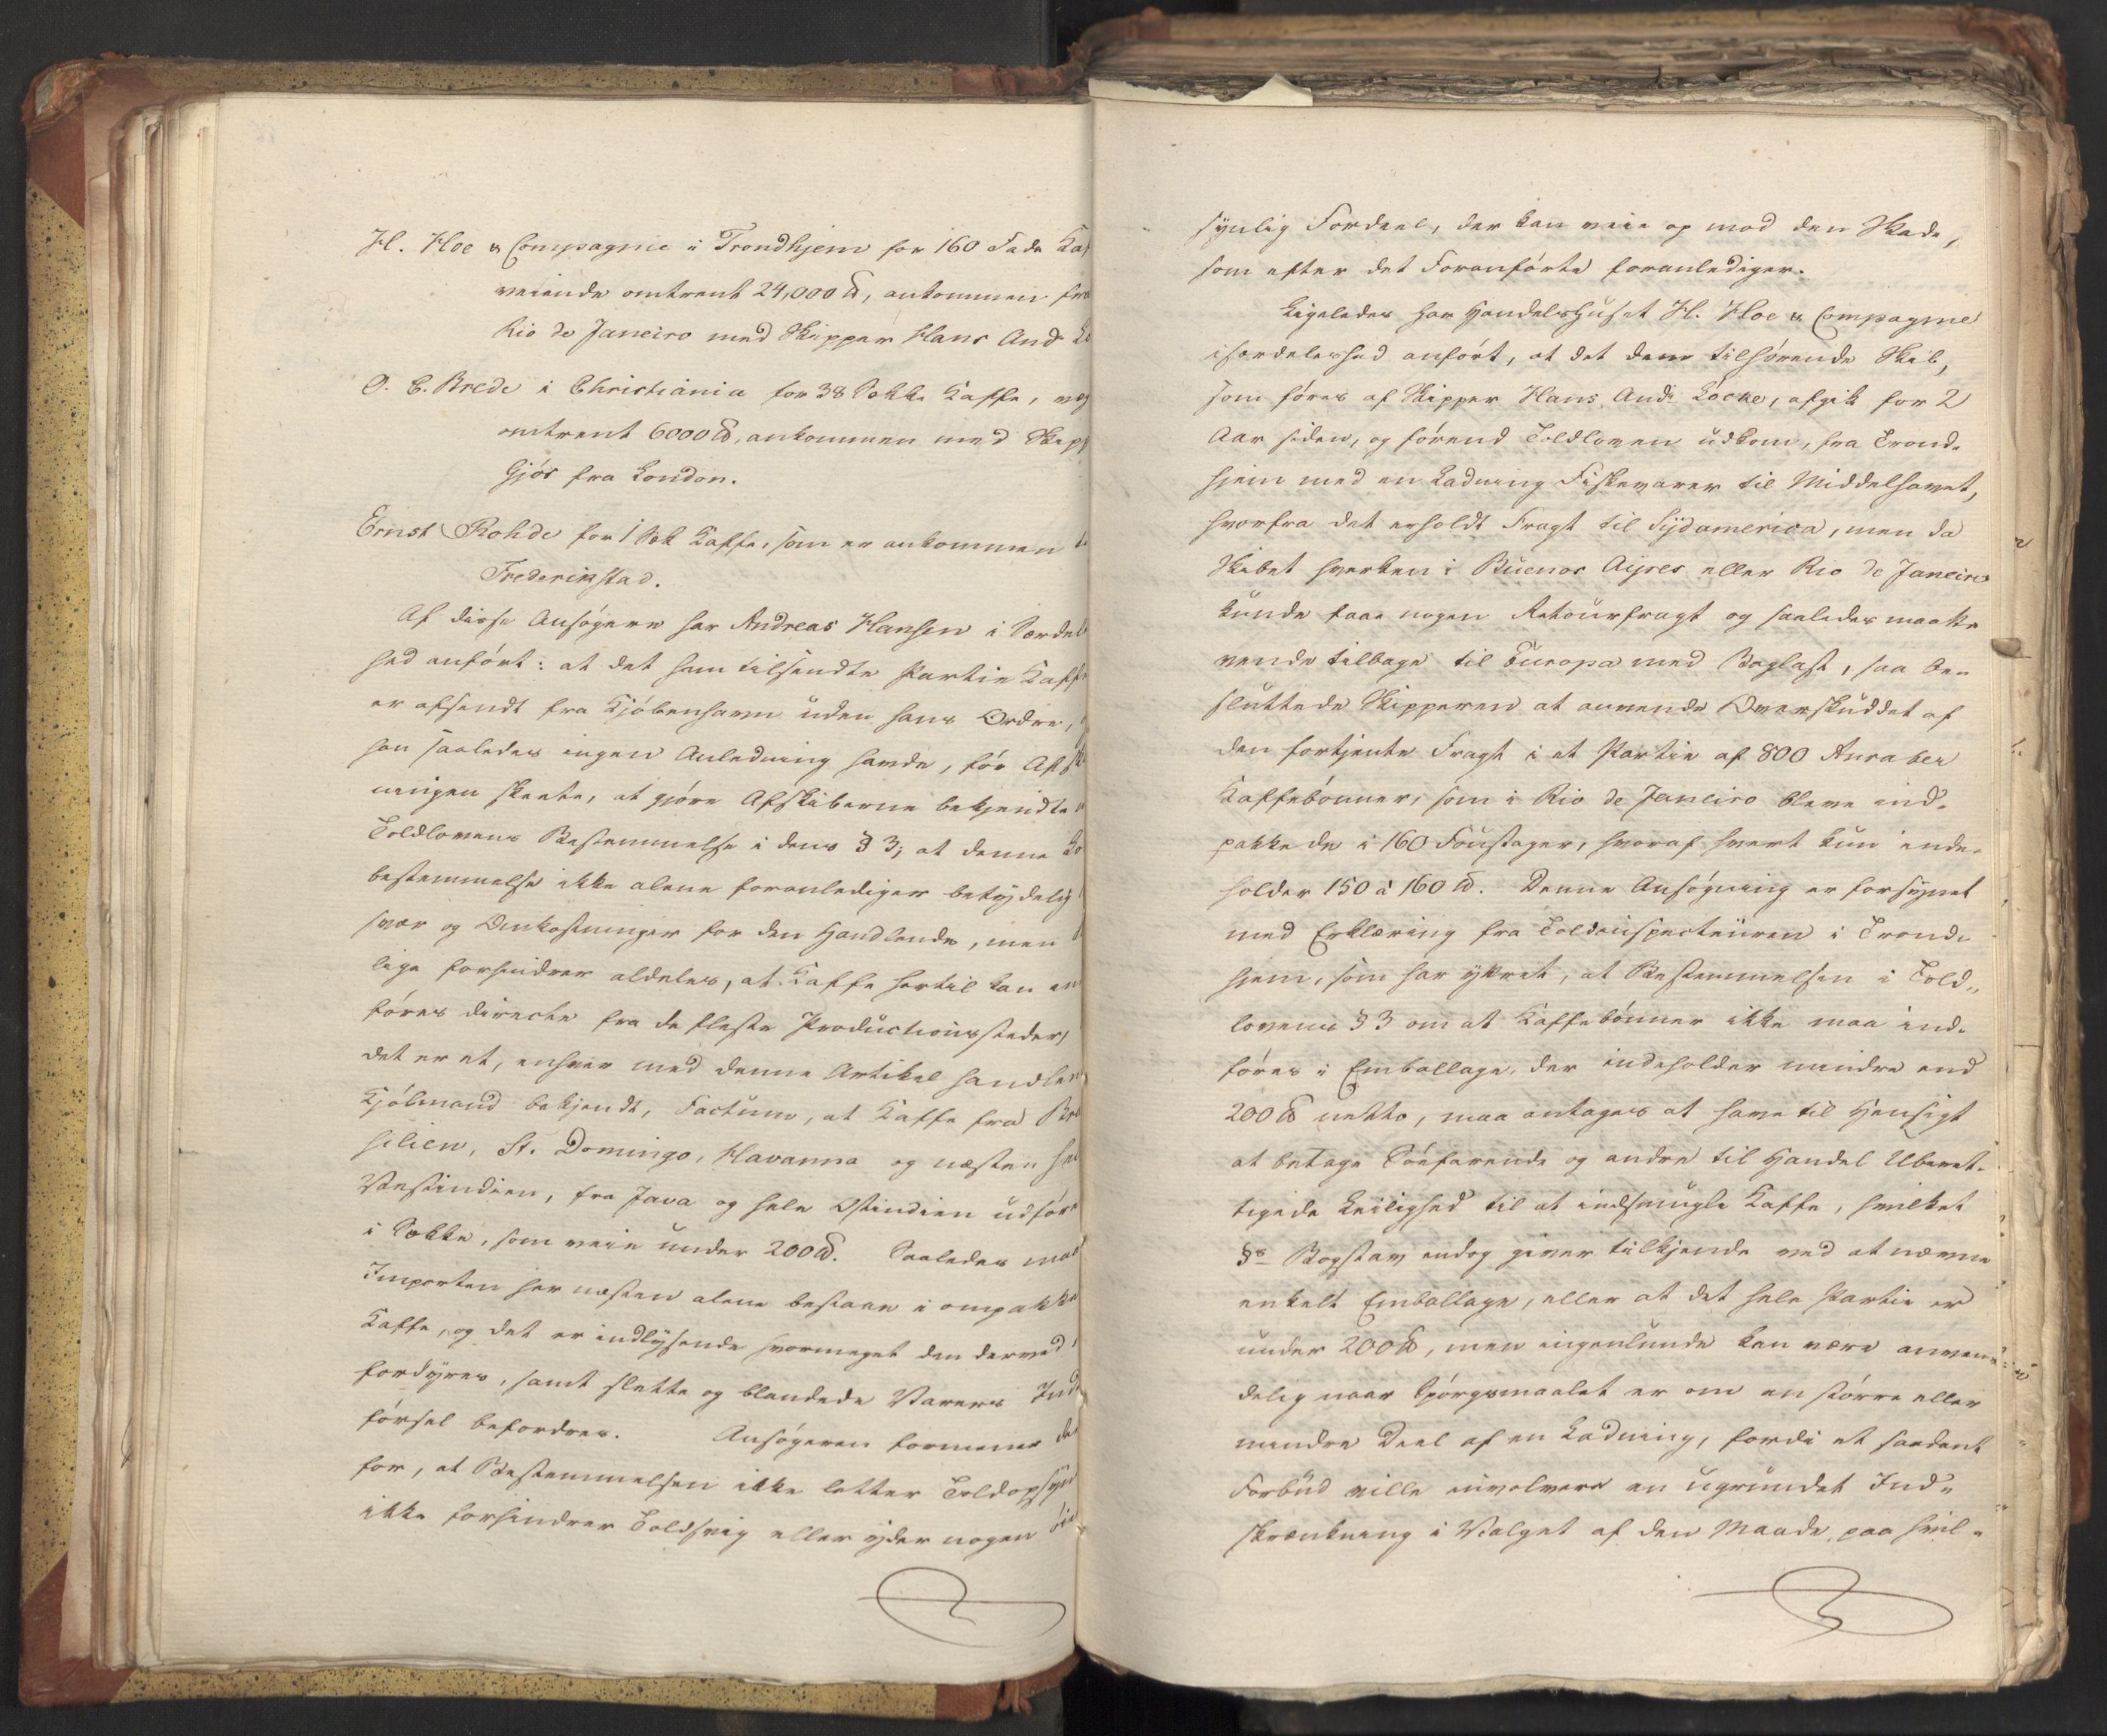 H. Hoe & Compagnie i Trondhjem for 160 Fade Kaf
veiende omtrent 24,000 ℔, ankommen fra
Rio de Janeiro med Skipper Hans And
O. C. Brede i Christiania for 38 Sække Kaffe, veg
omtrent 6000 ℔, ankommen med Skipp
Gjös fra London.
Ernst Rohde for 1 Sæk Kaffe, som er ankommen
Frederikstad.
Af disse Ansögere har Andreas Hansen i Særdel
hed anfört: at det ham tilsendte Partie Kaffe
er afsendt fra Kjöbenhavn uden hans Ordre,
han saaledes ingen Anledning havde, för Afsk
ningen skeete, at gjöre Afskiberne bekjendte
Toldlovens Bestemmelse i dens § 3; at denne Lo
bestemmelse ikke alene foranlediger betydelig
svær og Omkostninger for den Handlende, men
lige forhindrer aldeles, at Kaffe hertil kan an
föres directe fra de fleste Productionssteder,
det er et, enhver med denne Artikel handlen
Kjöbmand bekjendt, Factum, at Kaffe fra Bra
silien, St. Domingo, Havanna og næsten hel
Vestindien, fra Java og hele Ostindien udför
i Sække, som veie under 200 ℔. Saaledes maa
Importen her næsten alene bestaae i ompakke
Kaffe, og det er indlysende hvormeget den derved
fordyres, samt slette og blandede Varers Ind
försel befordres. Ansögeren formener det
for, at Bestemmelsen ikke letter Toldopsyn
ikke forhindrer Toldsvig eller yder nogen öin
synlig Fordeel, der kan veie op mod den Skade,
som efter det Foranförte foranlediger.
Ligeledes har Handelshuset H. Hoe & Compagnie
isærdeleshed anfört, at det dem tilhörende Skib,
som föres af Skipper Hans And: Löcke, afgik for 2
Aar siden, og förend Toldloven udkom, fra Trond-
hjem med en Ladning Fiskevarer til Middelhavet,
hvorfra det erholdt Fragt til Sydamerica, men da
Skibet hverken i Buenos Aijres eller Rio de Janeiro
kunde faae nogen Retourfragt og saaledes maatte
vende tilbage til Europa med Baglast, saa be-
sluttede Skipperen at anvende Overskuddet af
den fortjente Fragt i et Partie af 800 Arraber
Kaffebönner, som i Rio de Janeiro bleve ind-
pakkede i 160 Foustager, hvoraf hvert kun inde-
holder 150 à 160 ℔. Denne Ansögning er forsynet
med Erklæring fra Toldinspecteuren i Trond-
hjem, som har yttret, at Bestemmelsen i Told-
lovens § 3 om at Kaffebönner ikke maa ind-
föres i Emballage, der indeholder mindre end
200 ℔ netto, maa antages at have til Hensigt
at betage Söefarende og andre til Handel Uberet-
tigede Leilighed til at indsmugle Kaffe, hvilket
§s Bogstav endog giver tilkjende ved at nævne
enkelt Emballage, eller at det hele Partie er
under 200 ℔, men ingenlunde kan være anven-
delig naar Spörgsmaalet er om en större eller
mindre Deel af en Ladning, fordi et saadant
Forbud ville involvere en ugrundet Ind-
skrænkning i Valget af den Maade, paa hvil-